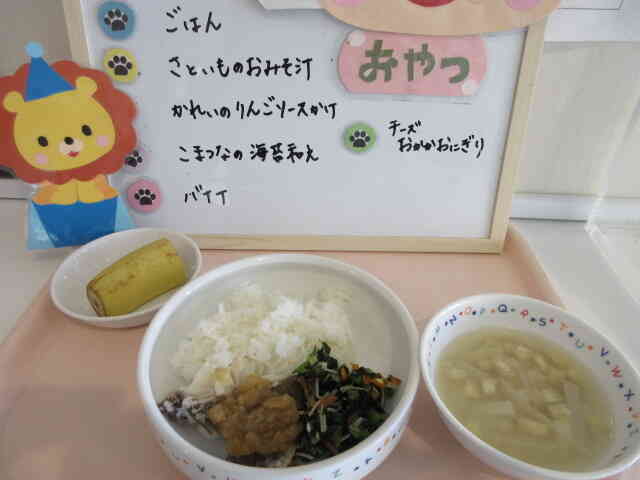 ごはん
さといものおみそ汁
かれいのりんごソースかけ
こまつなの海苔和え
バナナ
おやつ
チーズ
おかかおにぎり
N O P Q R S T U V W X